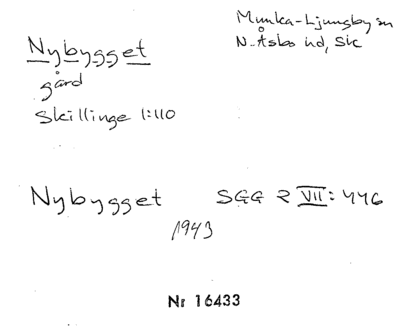 Munka-Ljungby sn
N. Åsbo hd, Sk
Nybygget
gård
Skillinge 1:110
Nybygget SGG 2 VII: 446
1943
Nr 16433